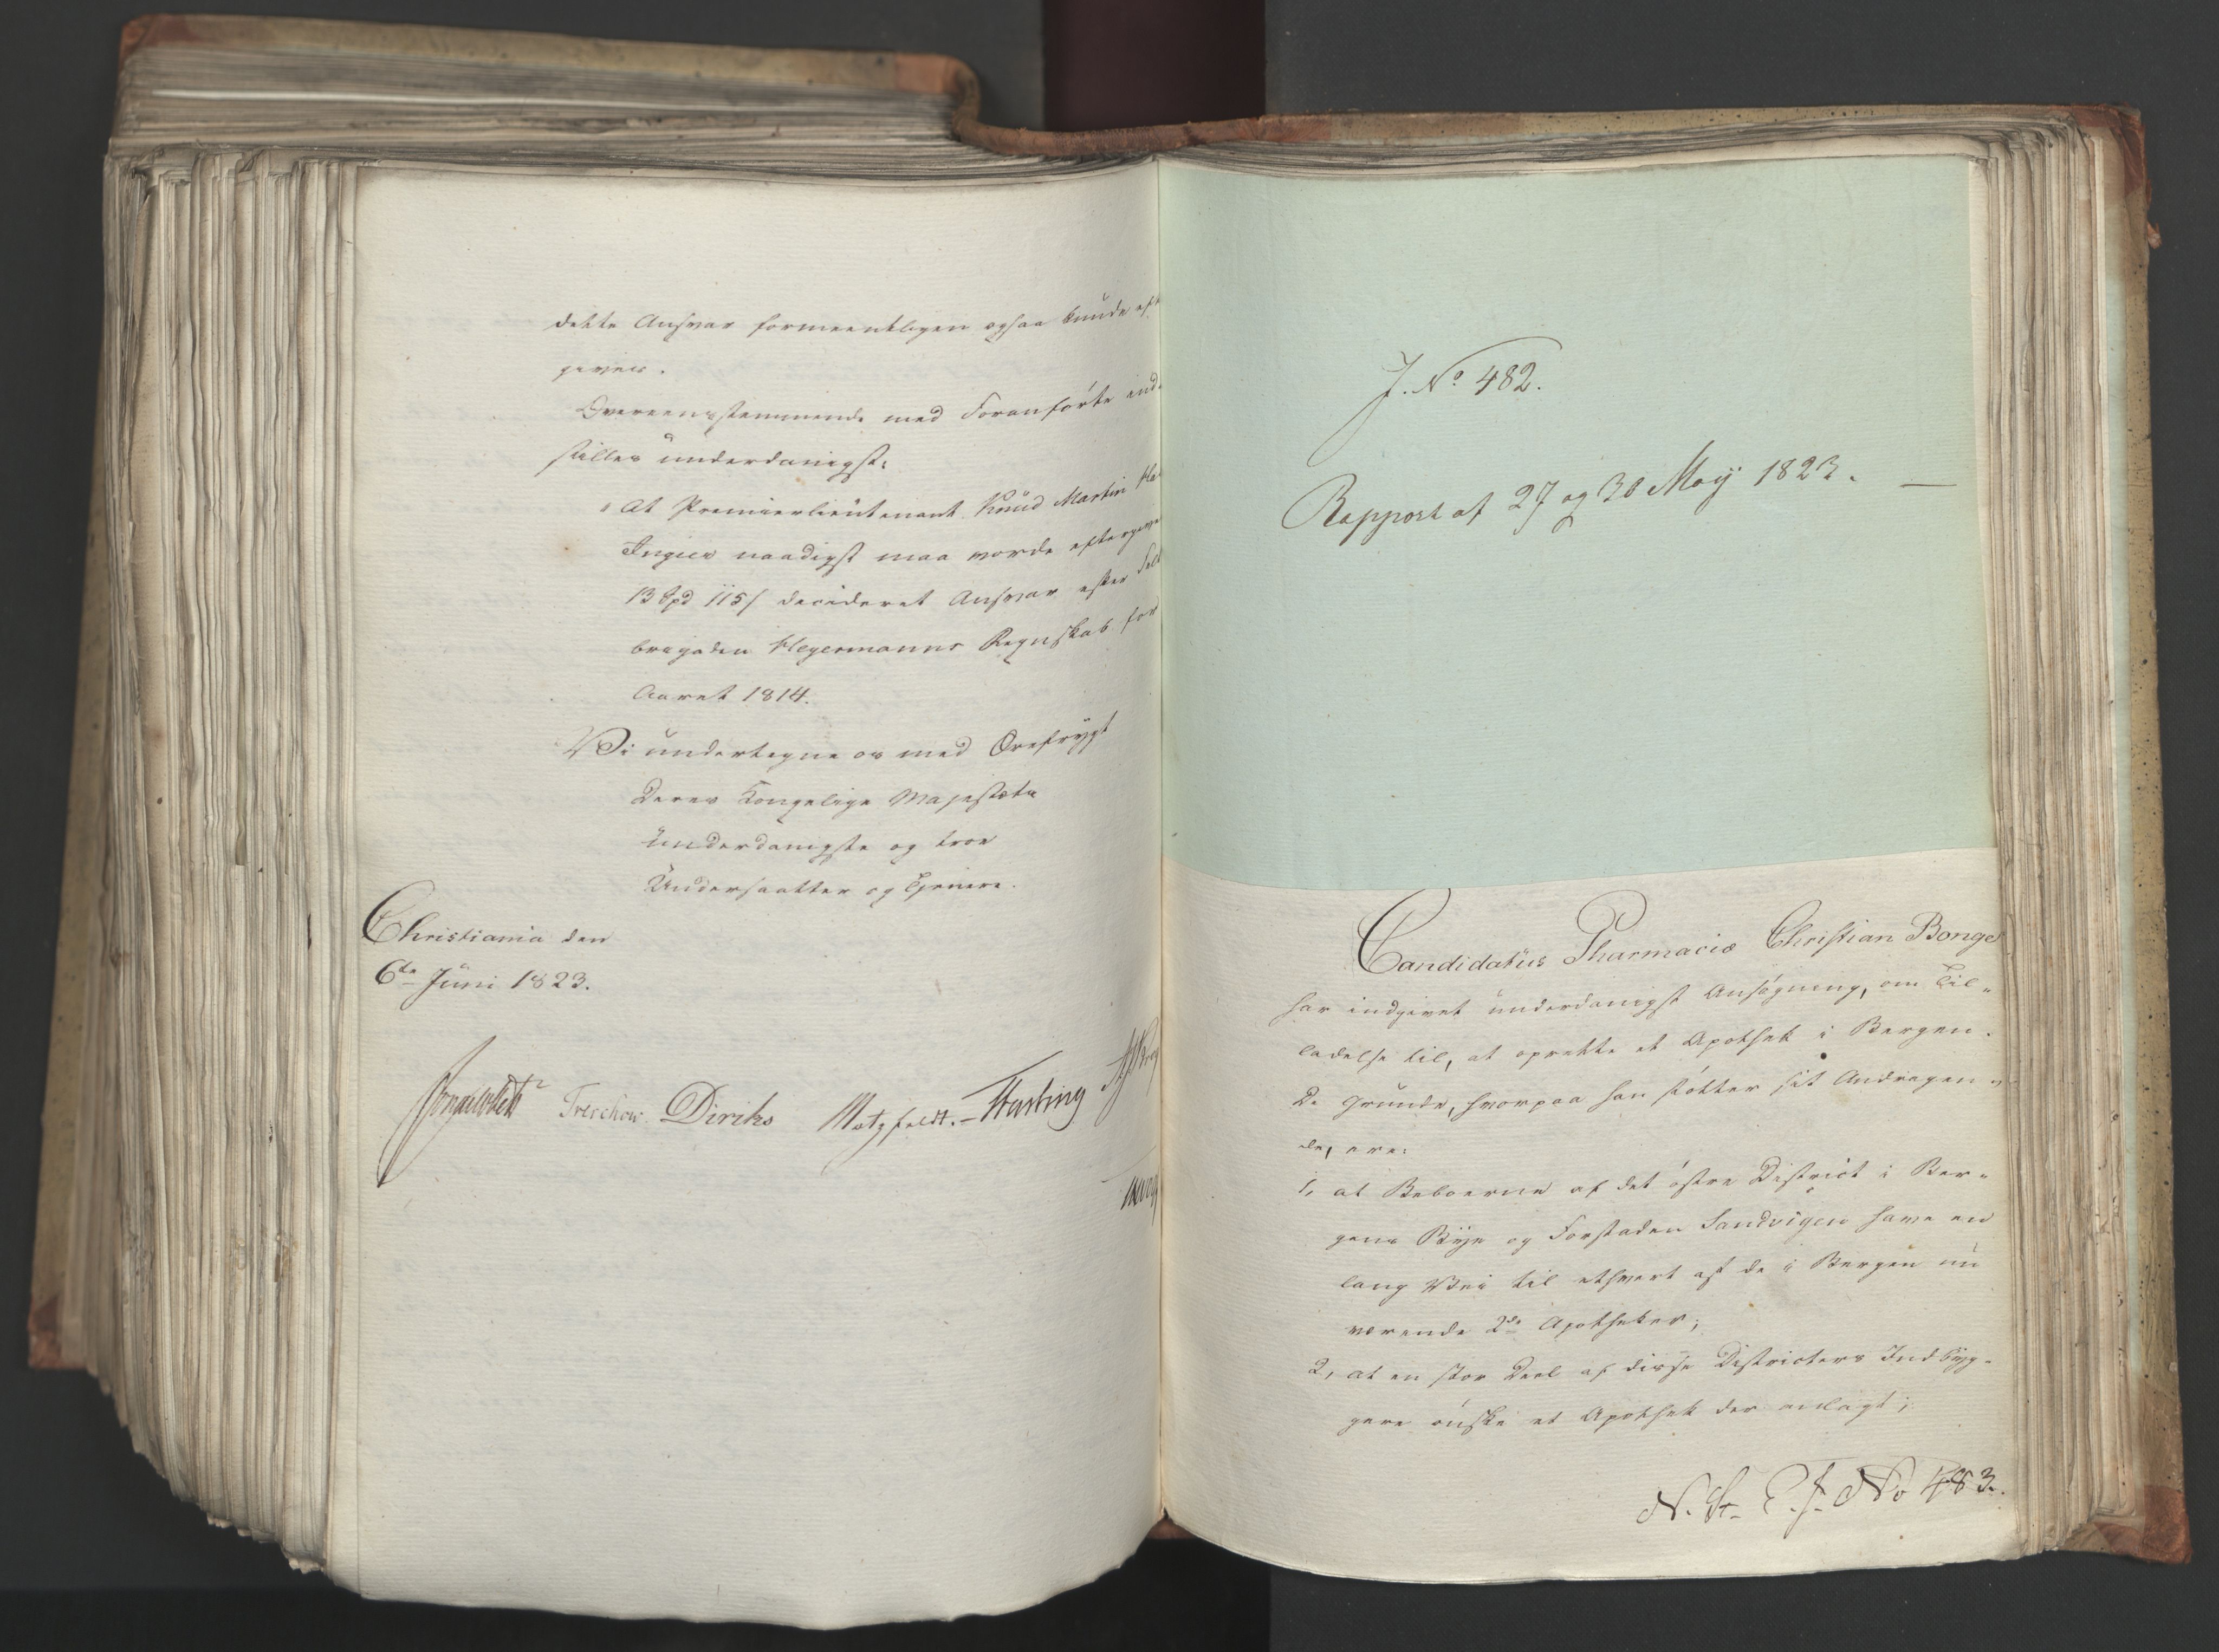 dette Ansvar formeentligen ogsaa kunde eft
gives.
Overeensstemmende med Foranførte ind-
stilles underdanigst:
At Premierlieutenant Knud Martin
Ingier naadigst maa vorde eftergivet
13 Spd 115 s decideret Ansvar efter Felt
brigaden Hegermanns Regnskab for
Aaret 1814.
Vi undertegne os med Ærefrygt
Deres Kongelige Majestæts
underdanigste og troe
Undersaatter og Tjenere.
Christiania den
6te Juni 1823.
Treschow. Diriks Motzfeldt. Fasting
J. No 482.
Rapport af 27 og 30 May 1823. —
Candidatus Pharmaciæ Christian Bonge
har indgivet underdanigst Ansøgning, om Til-
ladelse til, at oprette et Apothek i Bergen.
De Grunde, hvorpaa han støtter sit Andragen-
de, ere:
1, at Beboerne af det østre District i Ber-
gens Bye og Forstaden Sandvigen have en
lang Vei til ethvert af de i Bergen nu
værende 2de Apotheker;
2, at en stor Deel af disse Districters Indbyg-
gere ønske et Apothek der anlagt;
N. St. E. J. No 483.